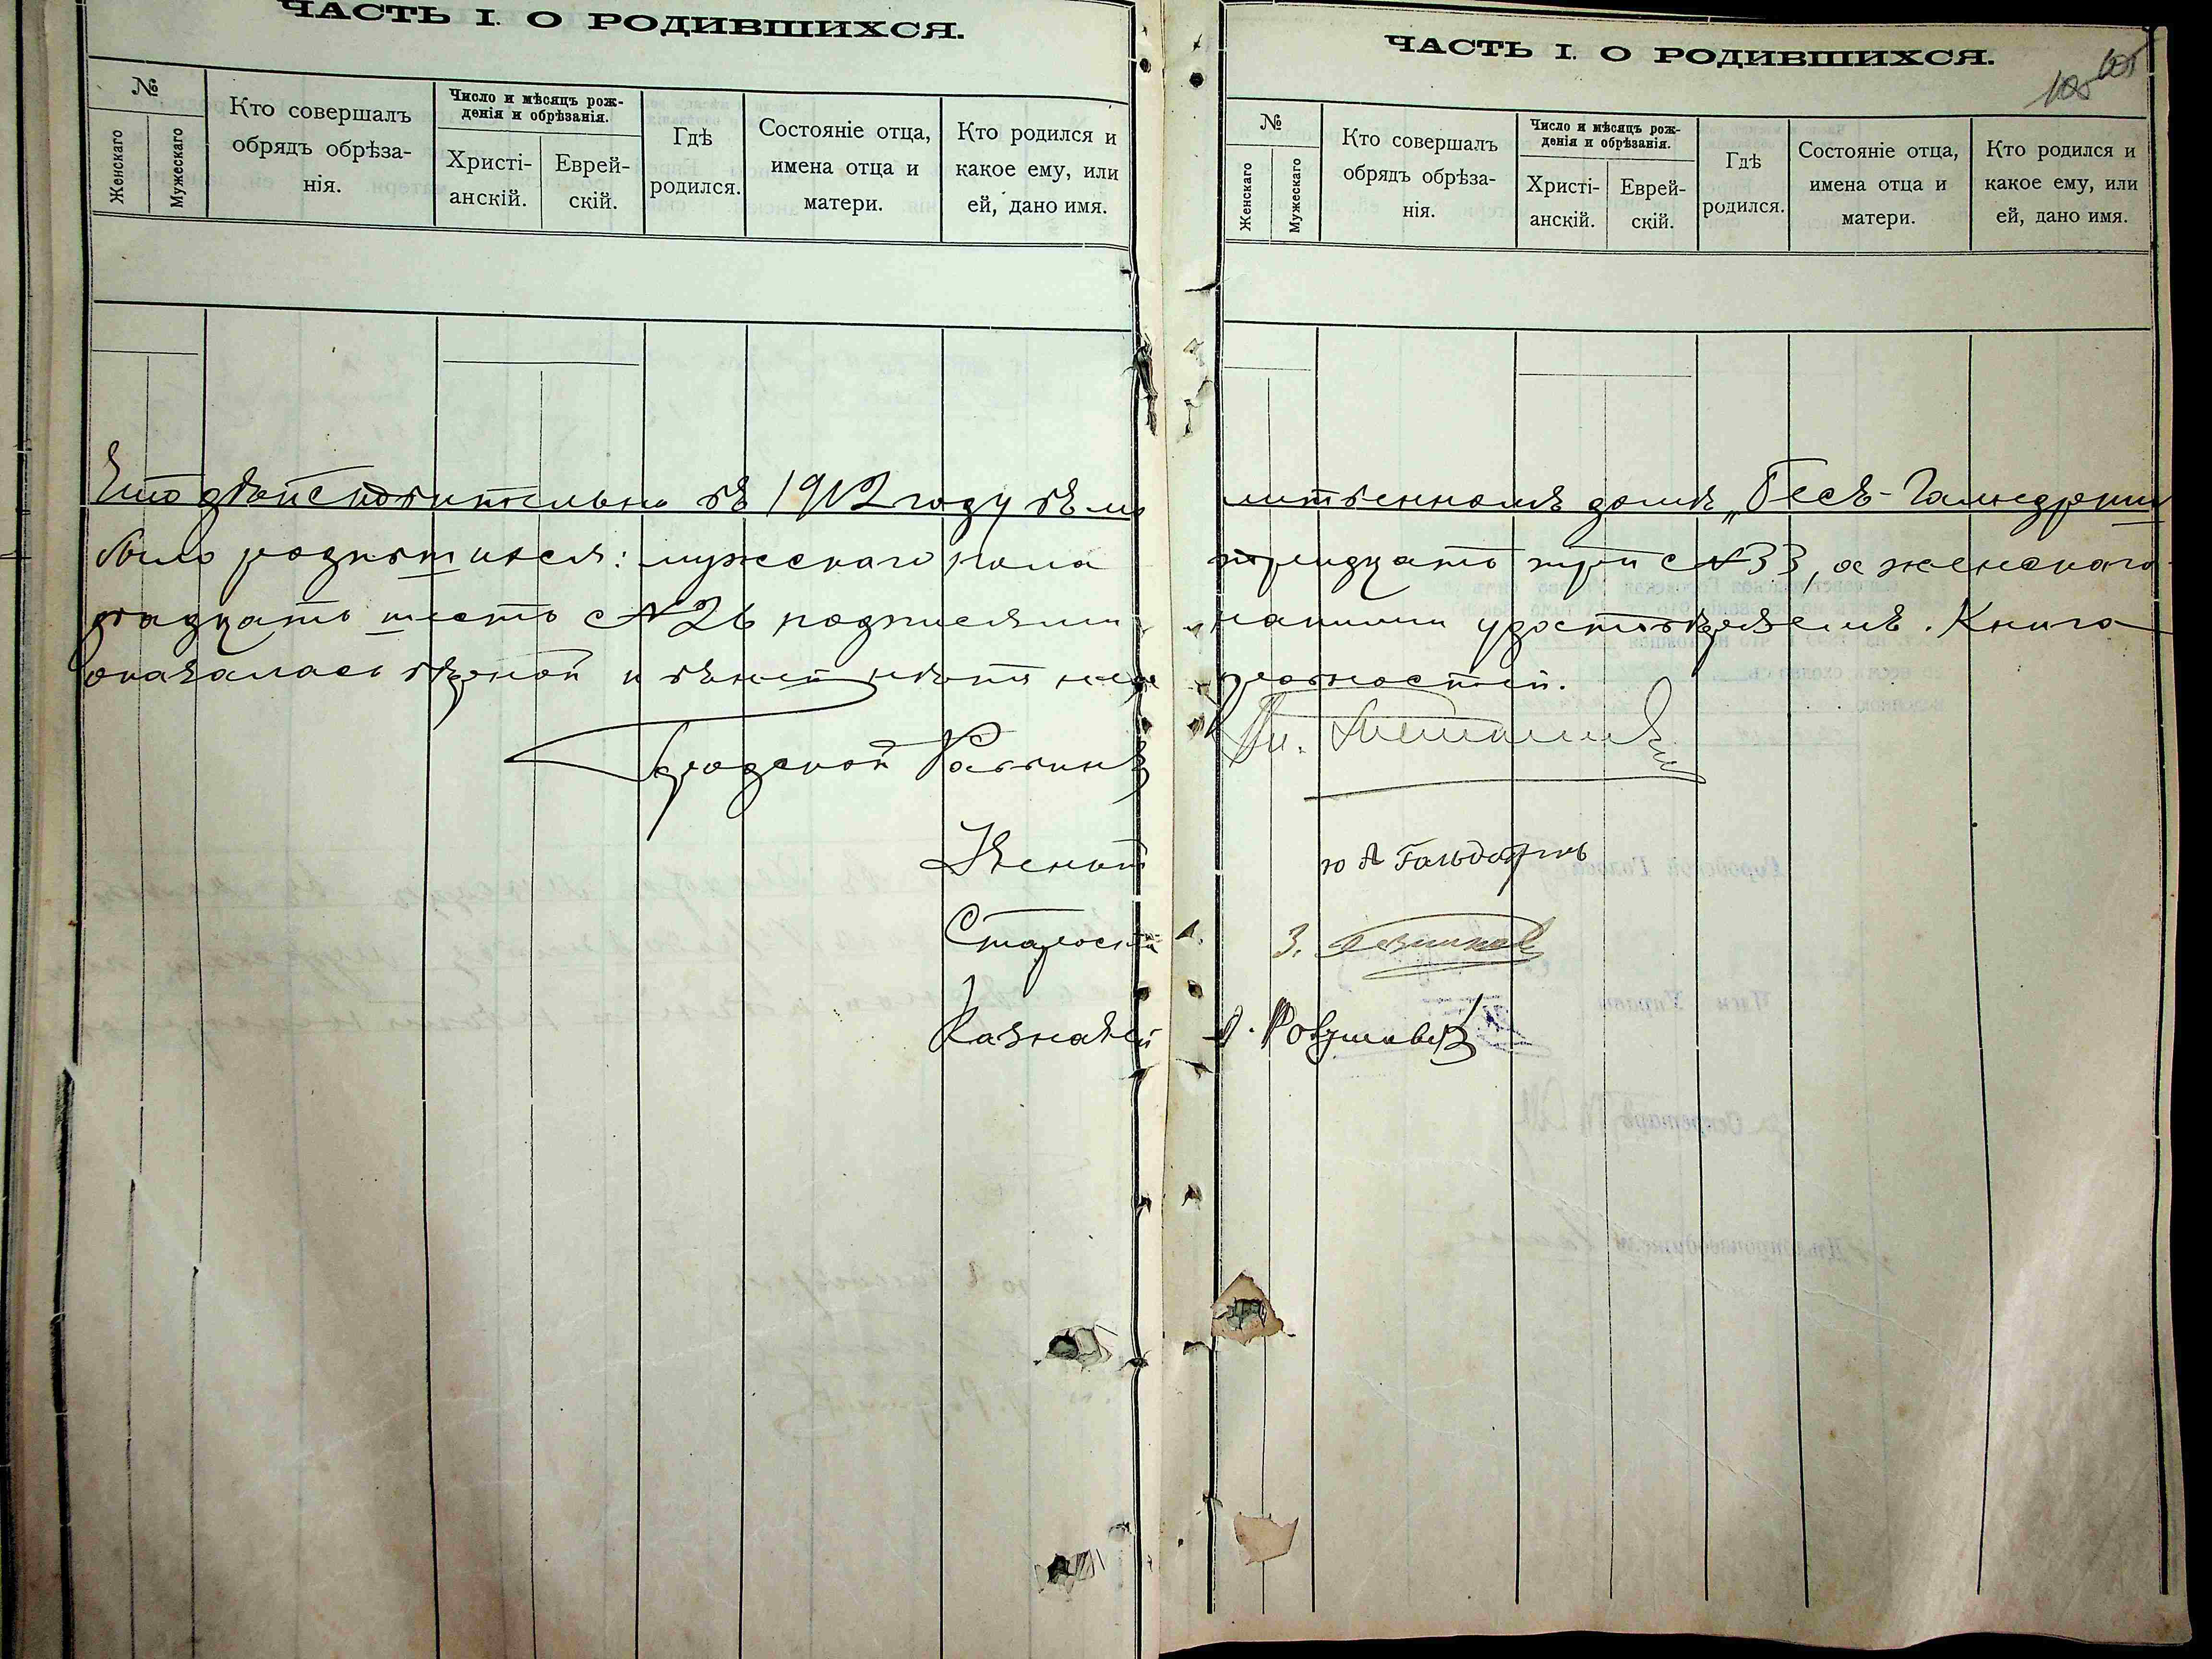 ЧАСТЬ I. О РОДИВШИХСЯ.
№
Женскаго
Мужескаго
Кто совершалъ
обрядъ обрѣза-
нія.
Число и мѣсяцъ рож-
денія и обрѣзанія.
Христі-
анскій.
Еврей-
скій.
Гдѣ
родился.
Состояніе отца,
имена отца и
матери.
Кто родился и
какое ему, или
ей, дано имя.
ЧАСТЬ I. О РОДИВШИХСЯ.
105 105
№
Женскаго
Мужескаго
Кто совершалъ
обрядъ обрѣза-
нія.
Число и мѣсяцъ рож-
денія и обрѣзанія.
Христі-
анскій.
Еврей-
скій.
Гдѣ
родился.
Состояніе отца,
имена отца и
матери.
Кто родился и
какое ему, или
ей, дано имя.
Что дѣйствительно въ 1912 году въ мо литвенномъ домѣ „Бесъ-
было родившихся: мужескаго пола тридцать три №33, а женскаго
двадцать шесть №26 подписями нашими удостовѣряемъ. Книга
оказалась вѣрной и въ ней нѣтъ неи правностей.
Городской Раввинъ
Ученый Ю А Гольдабринъ
Староста З.
Казначей